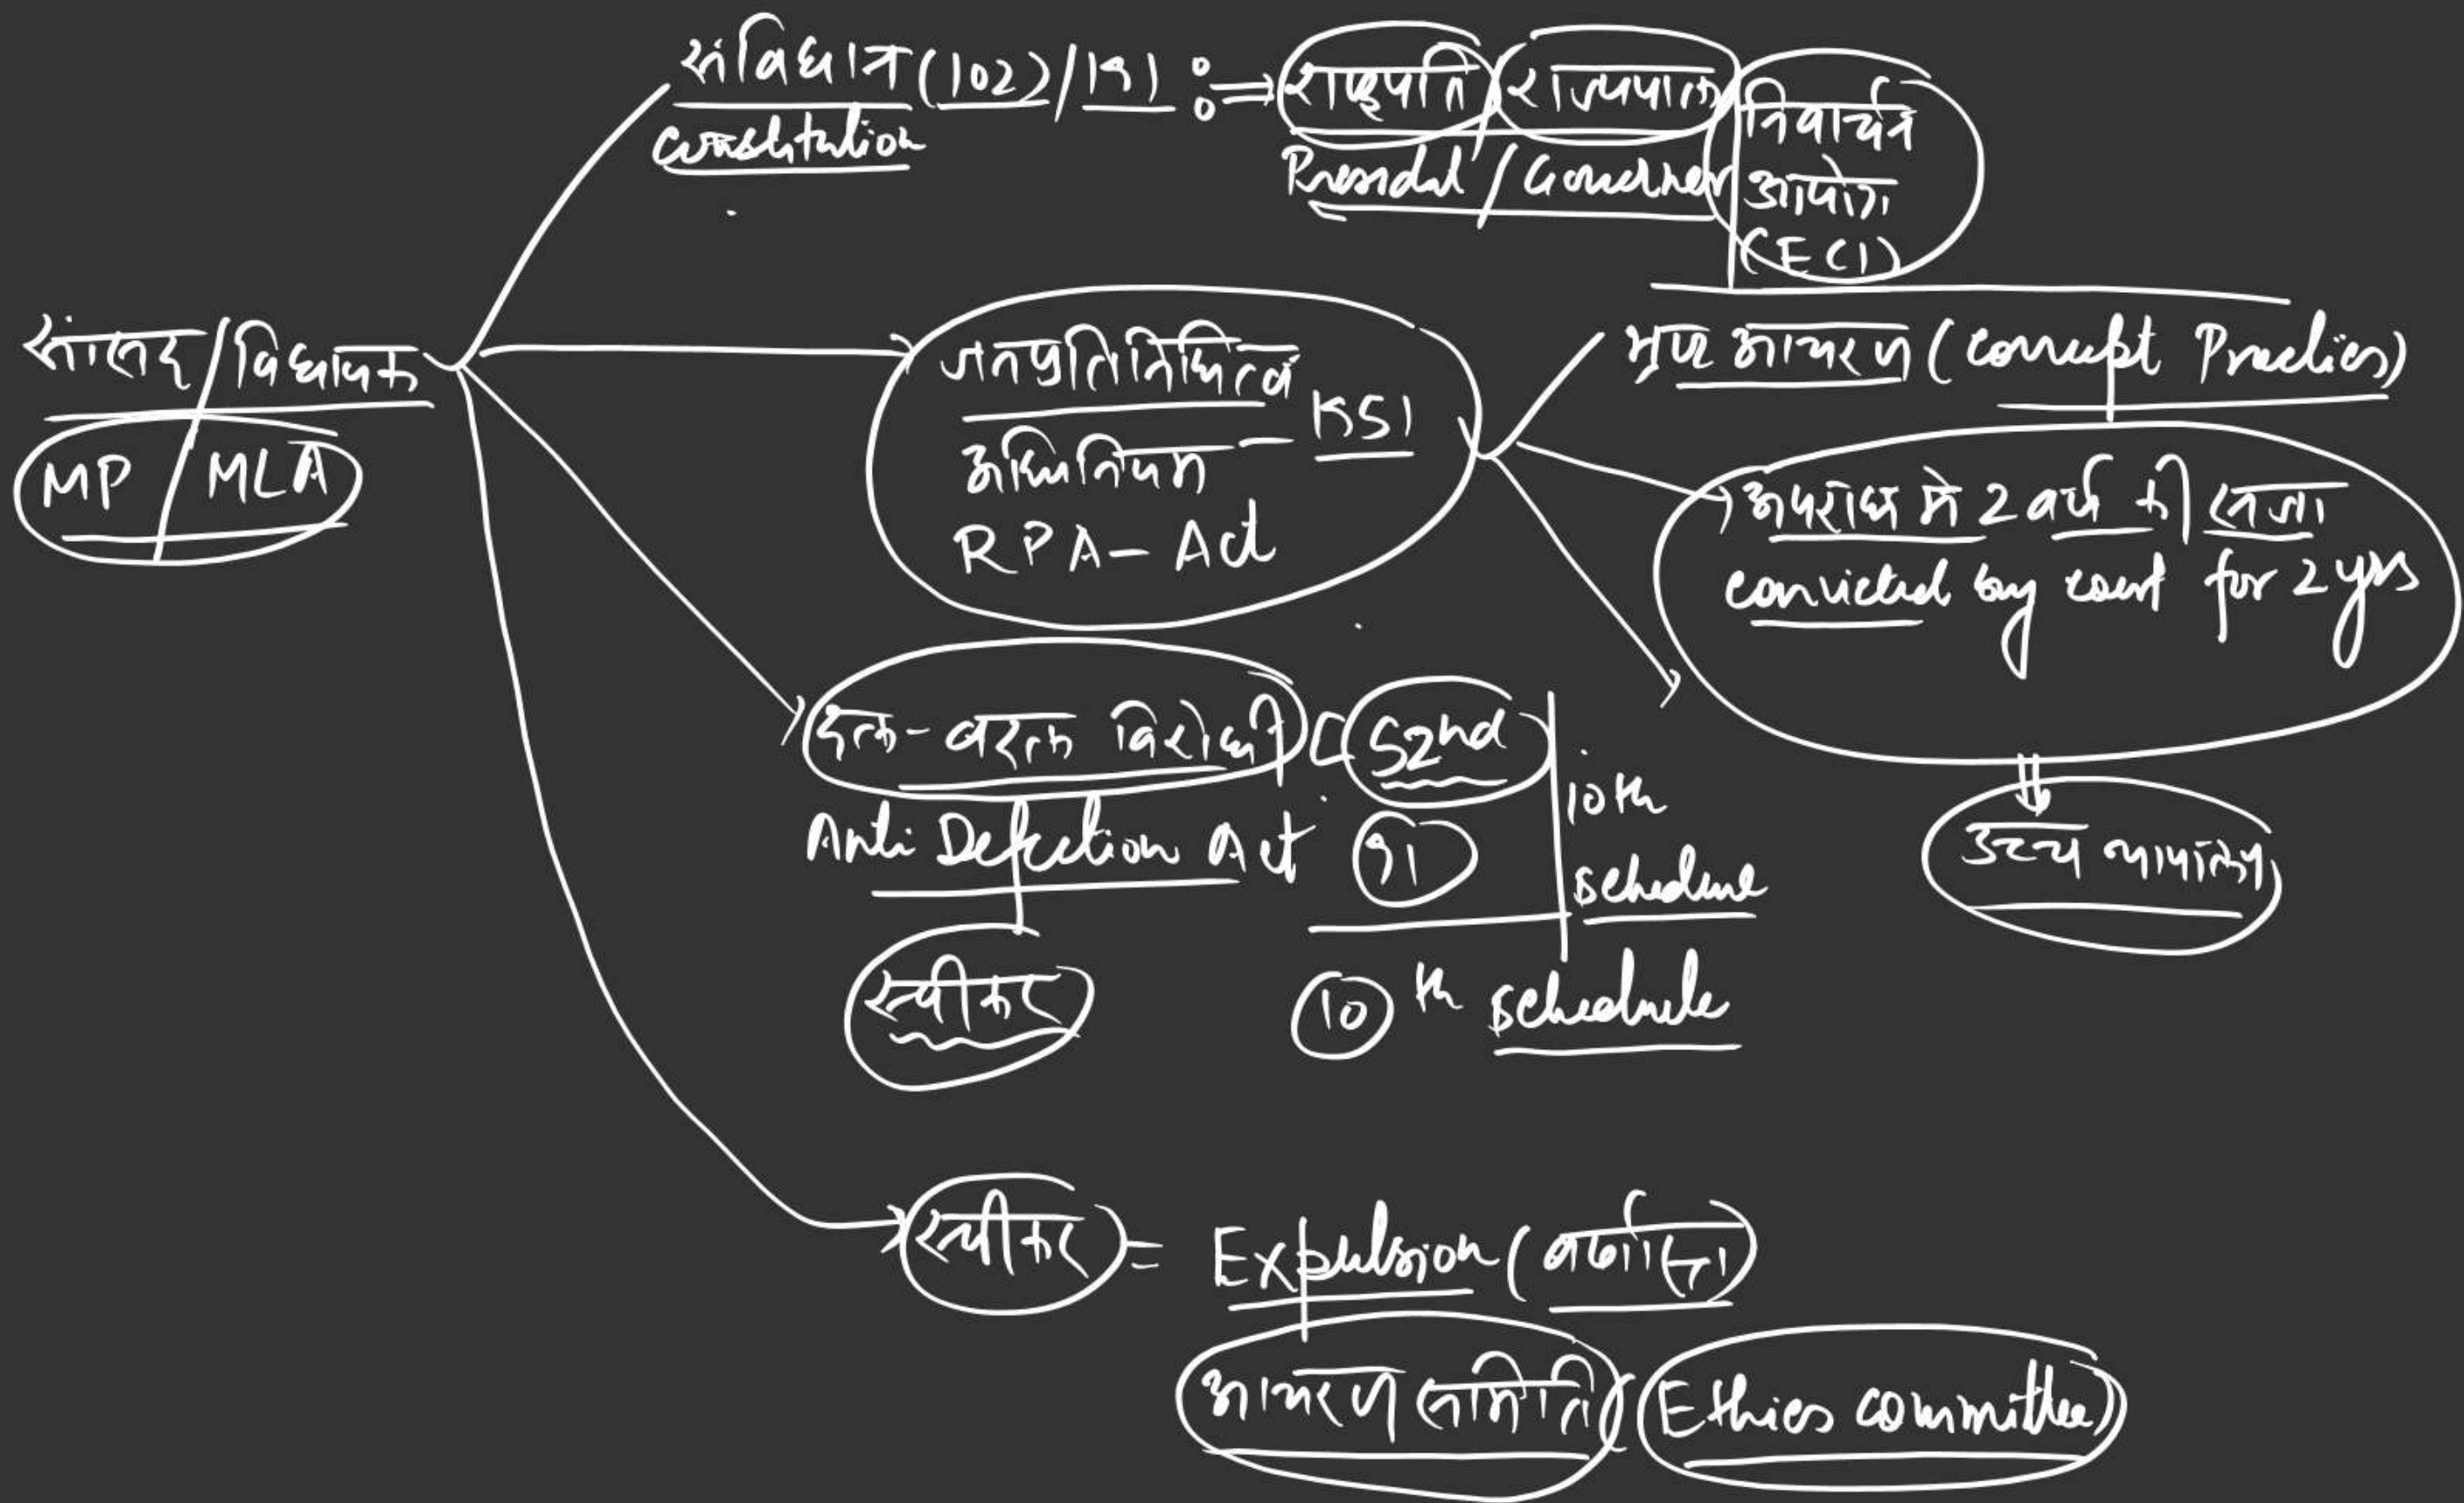 संविधान (102)/191 ⇒ राष्ट्रपति / राज्यपाल
Constitution
President / Governer
निर्वाचन
आयोग
(ECI)
सांसद / विधायक
MP / MLA
जनप्रतिनिधित्व
अधिनियम - 1951
RPA - Act
भ्रष्ट आचरण (Corrupt Practices)
अपराध मे 2 वर्ष की सजा
convicted by court for 2 yrs
उच्च न्यायालय
दल-बदल विरोधी (52nd
Anti Defection Act 91
10th
schedule
स्पीकर
10th schedule
स्पीकर = Expulsion (बर्खास्त)
आचरण समिति (Ethics committee)